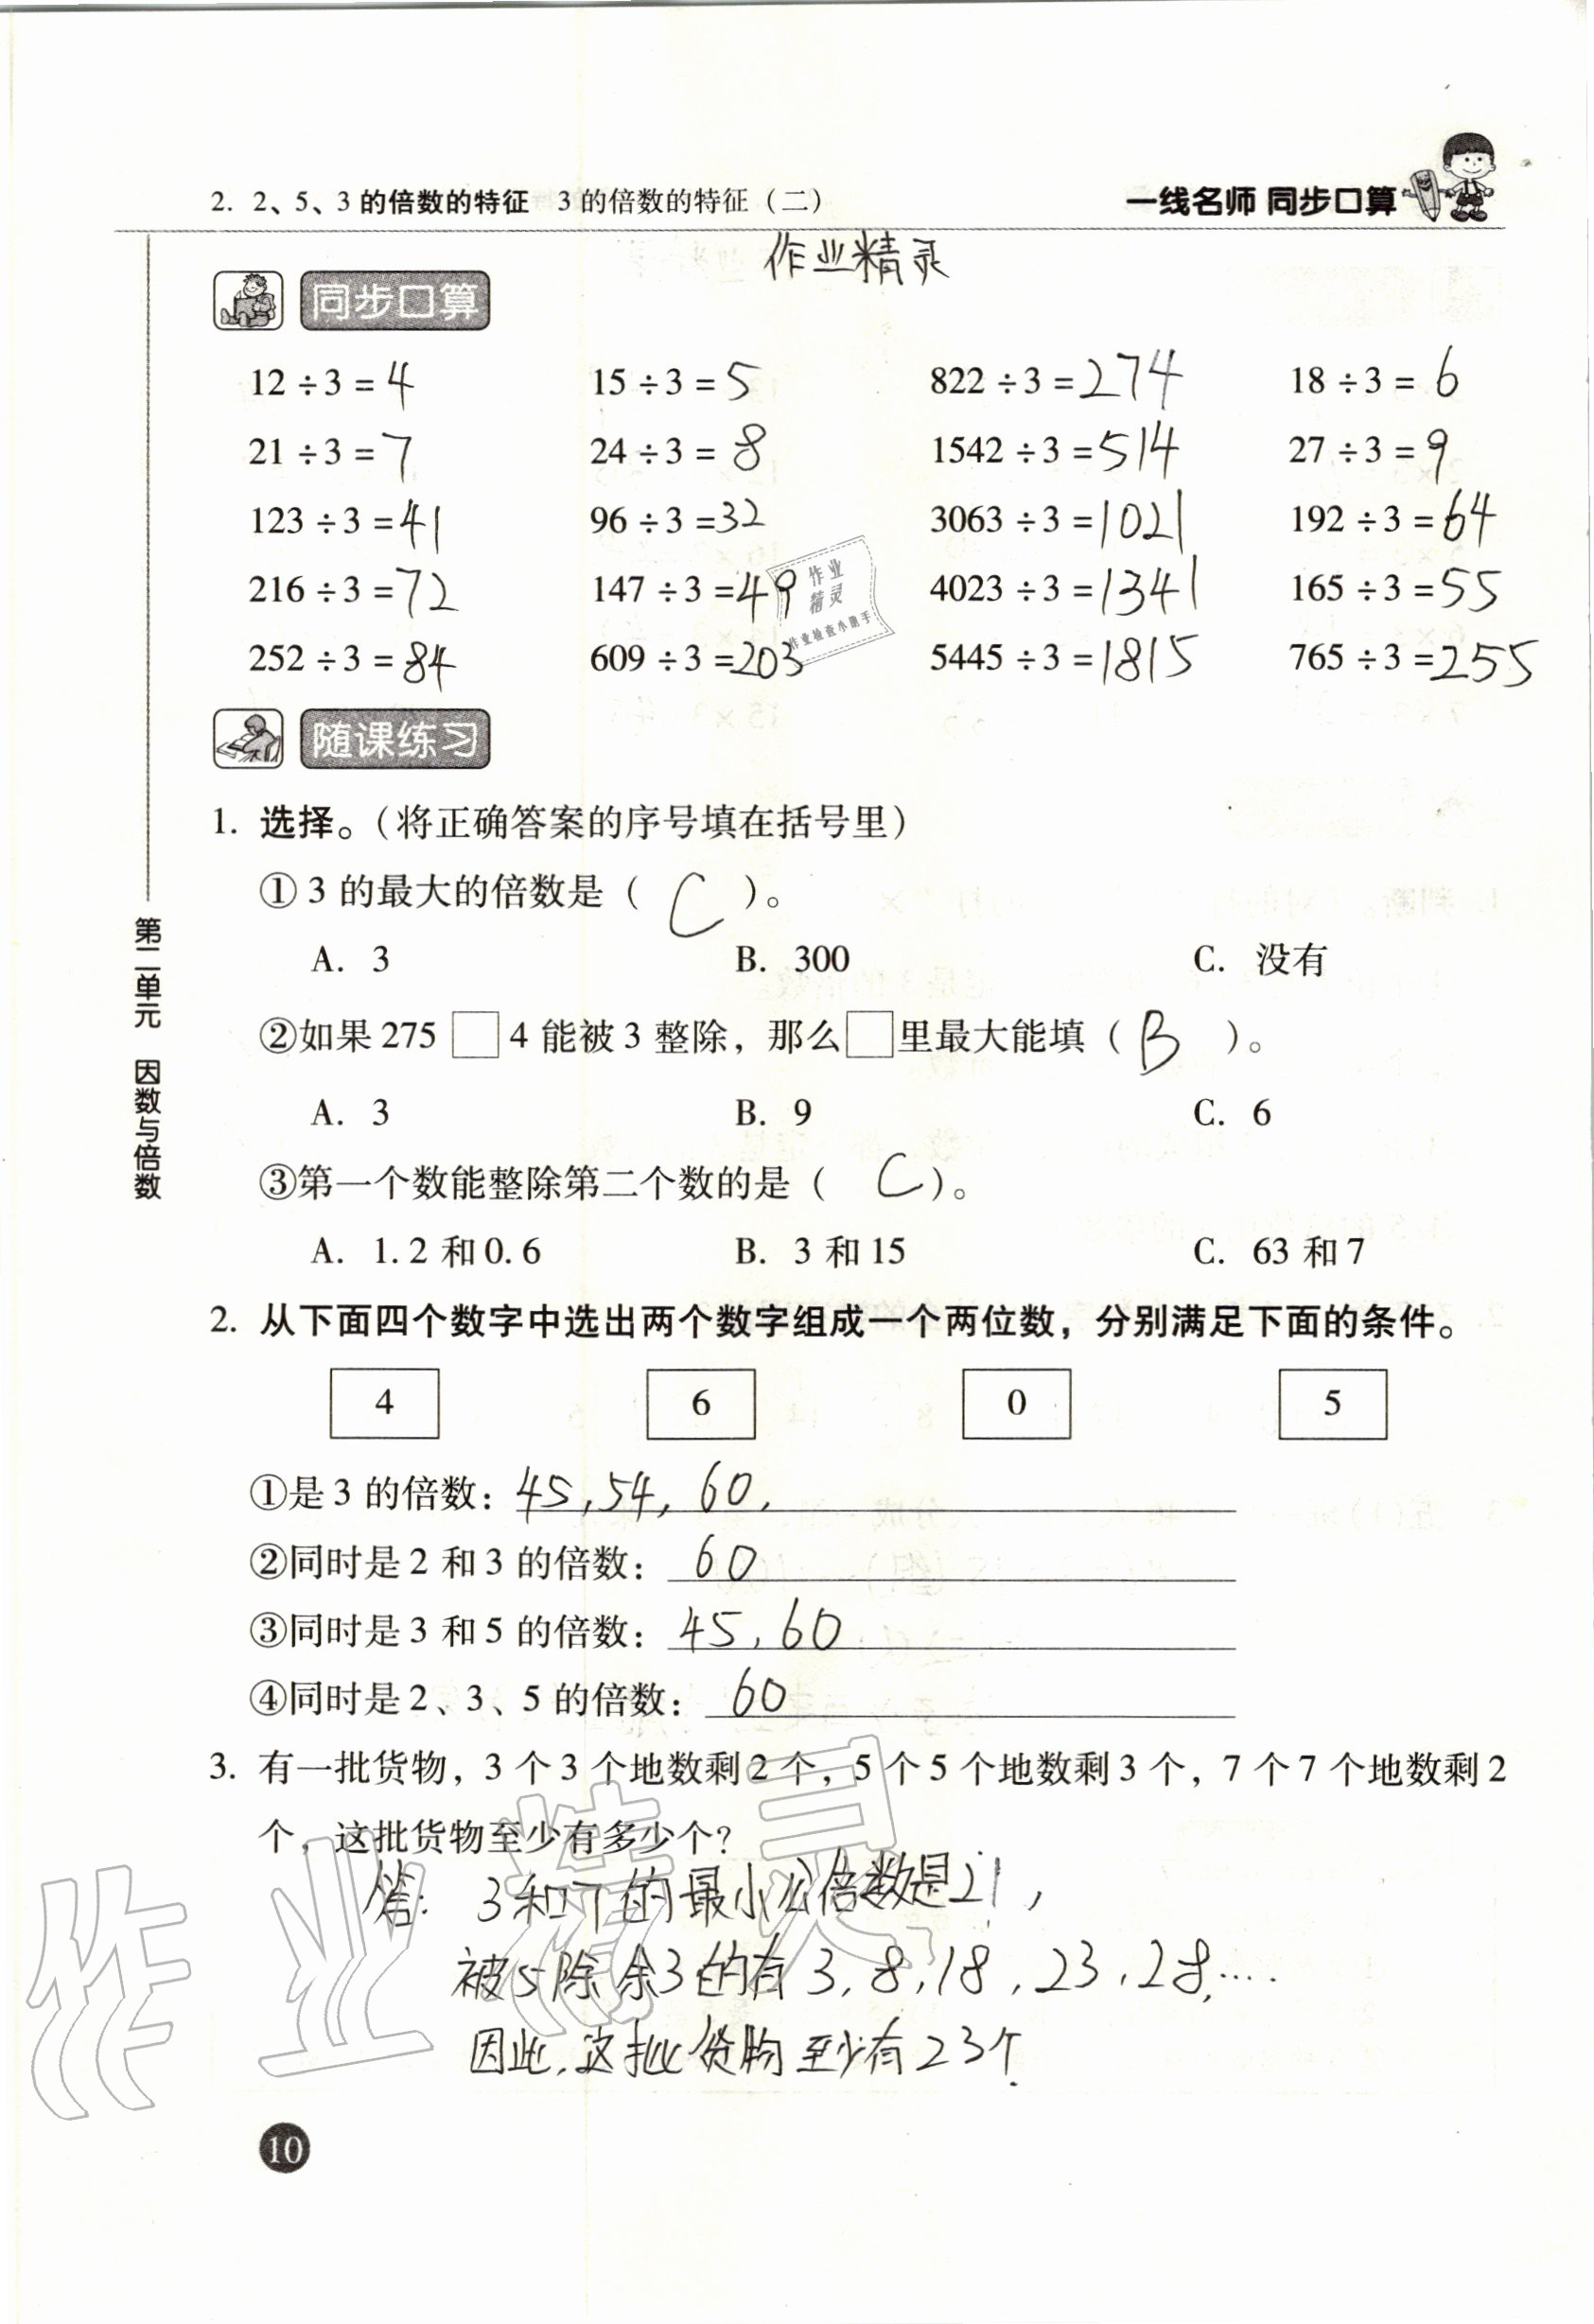 2. 2、5、3 的倍数的特征 3 的倍数的特征（二） 一线名师 同步口算
作业精灵
同步口算
12 ÷ 3 = 4 15 ÷ 3 = 5 822 ÷ 3 = 274 18 ÷ 3 = 6
21 ÷ 3 = 7 24 ÷ 3 = 8 1542 ÷ 3 = 514 27 ÷ 3 = 9
123 ÷ 3 = 41 96 ÷ 3 = 32 3063 ÷ 3 = 1021 192 ÷ 3 = 64
216 ÷ 3 = 72 147 ÷ 3 = 49 4023 ÷ 3 = 1341 165 ÷ 3 = 55
252 ÷ 3 = 84 609 ÷ 3 = 203 5445 ÷ 3 = 1815 765 ÷ 3 = 255
作业
精灵
作业检查小助手
随课练习
1. 选择。（将正确答案的序号填在括号里）
①3 的最大的倍数是（ C ）。
A. 3 B. 300 C. 没有
②如果 275 □ 4 能被 3 整除，那么□里最大能填（ B ）。
A. 3 B. 9 C. 6
③第一个数能整除第二个数的是（ C ）。
A. 1.2 和 0.6 B. 3 和 15 C. 63 和 7
2. 从下面四个数字中选出两个数字组成一个两位数，分别满足下面的条件。
4 6 0 5
①是 3 的倍数：45, 54, 60,
②同时是 2 和 3 的倍数：60
③同时是 3 和 5 的倍数：45, 60
④同时是 2、3、5 的倍数：60
3. 有一批货物，3 个 3 个地数剩 2 个，5 个 5 个地数剩 3 个，7 个 7 个地数剩 2
个，这批货物至少有多少个？
答：3和7的最小公倍数是21，
被5除余3的有3, 8, 18, 23, 28, ....
因此，这批货物至少有23个.
作业精灵
第二单元 因数与倍数
10